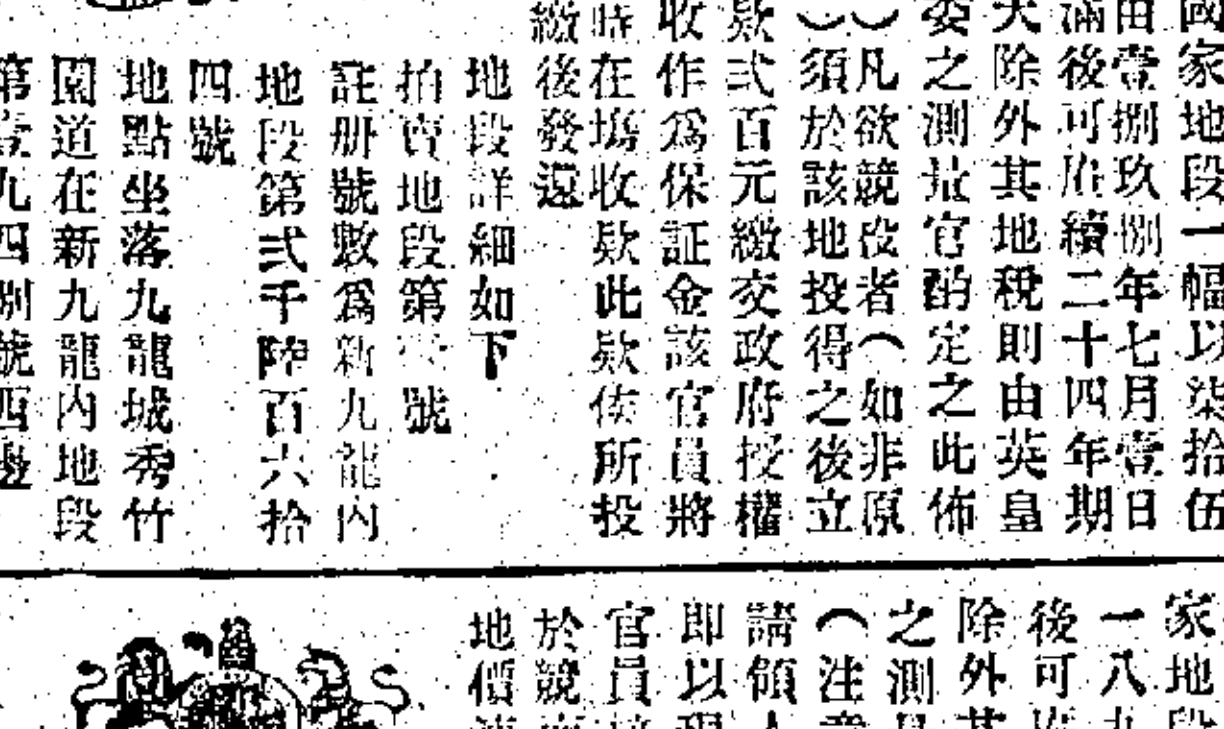 國家地段一幅以柒拾伍
由壹捌玖捌年七月壹日
滿後可陞續二十四年期
天除外其地稅則由英皇
委之測量官酌定之此佈
︶凡欲競投者︵如非原
︶須於該地投得之後立
欵弍百元繳交政府授權
收作爲保証金該官員將
時在塲收欵此欵俟所投
繳後發還
地段詳細如下
拍賣地段第 號
註册號數爲新九龍內
地段第弍千陸百六拾
四號
地點坐落九龍城秀竹
園道在新九龍內地段
第壹九四捌號西邊
家地段
一八九
後可
除外其
之測量
︵注意
請領人
即以現
官員
於競
地價